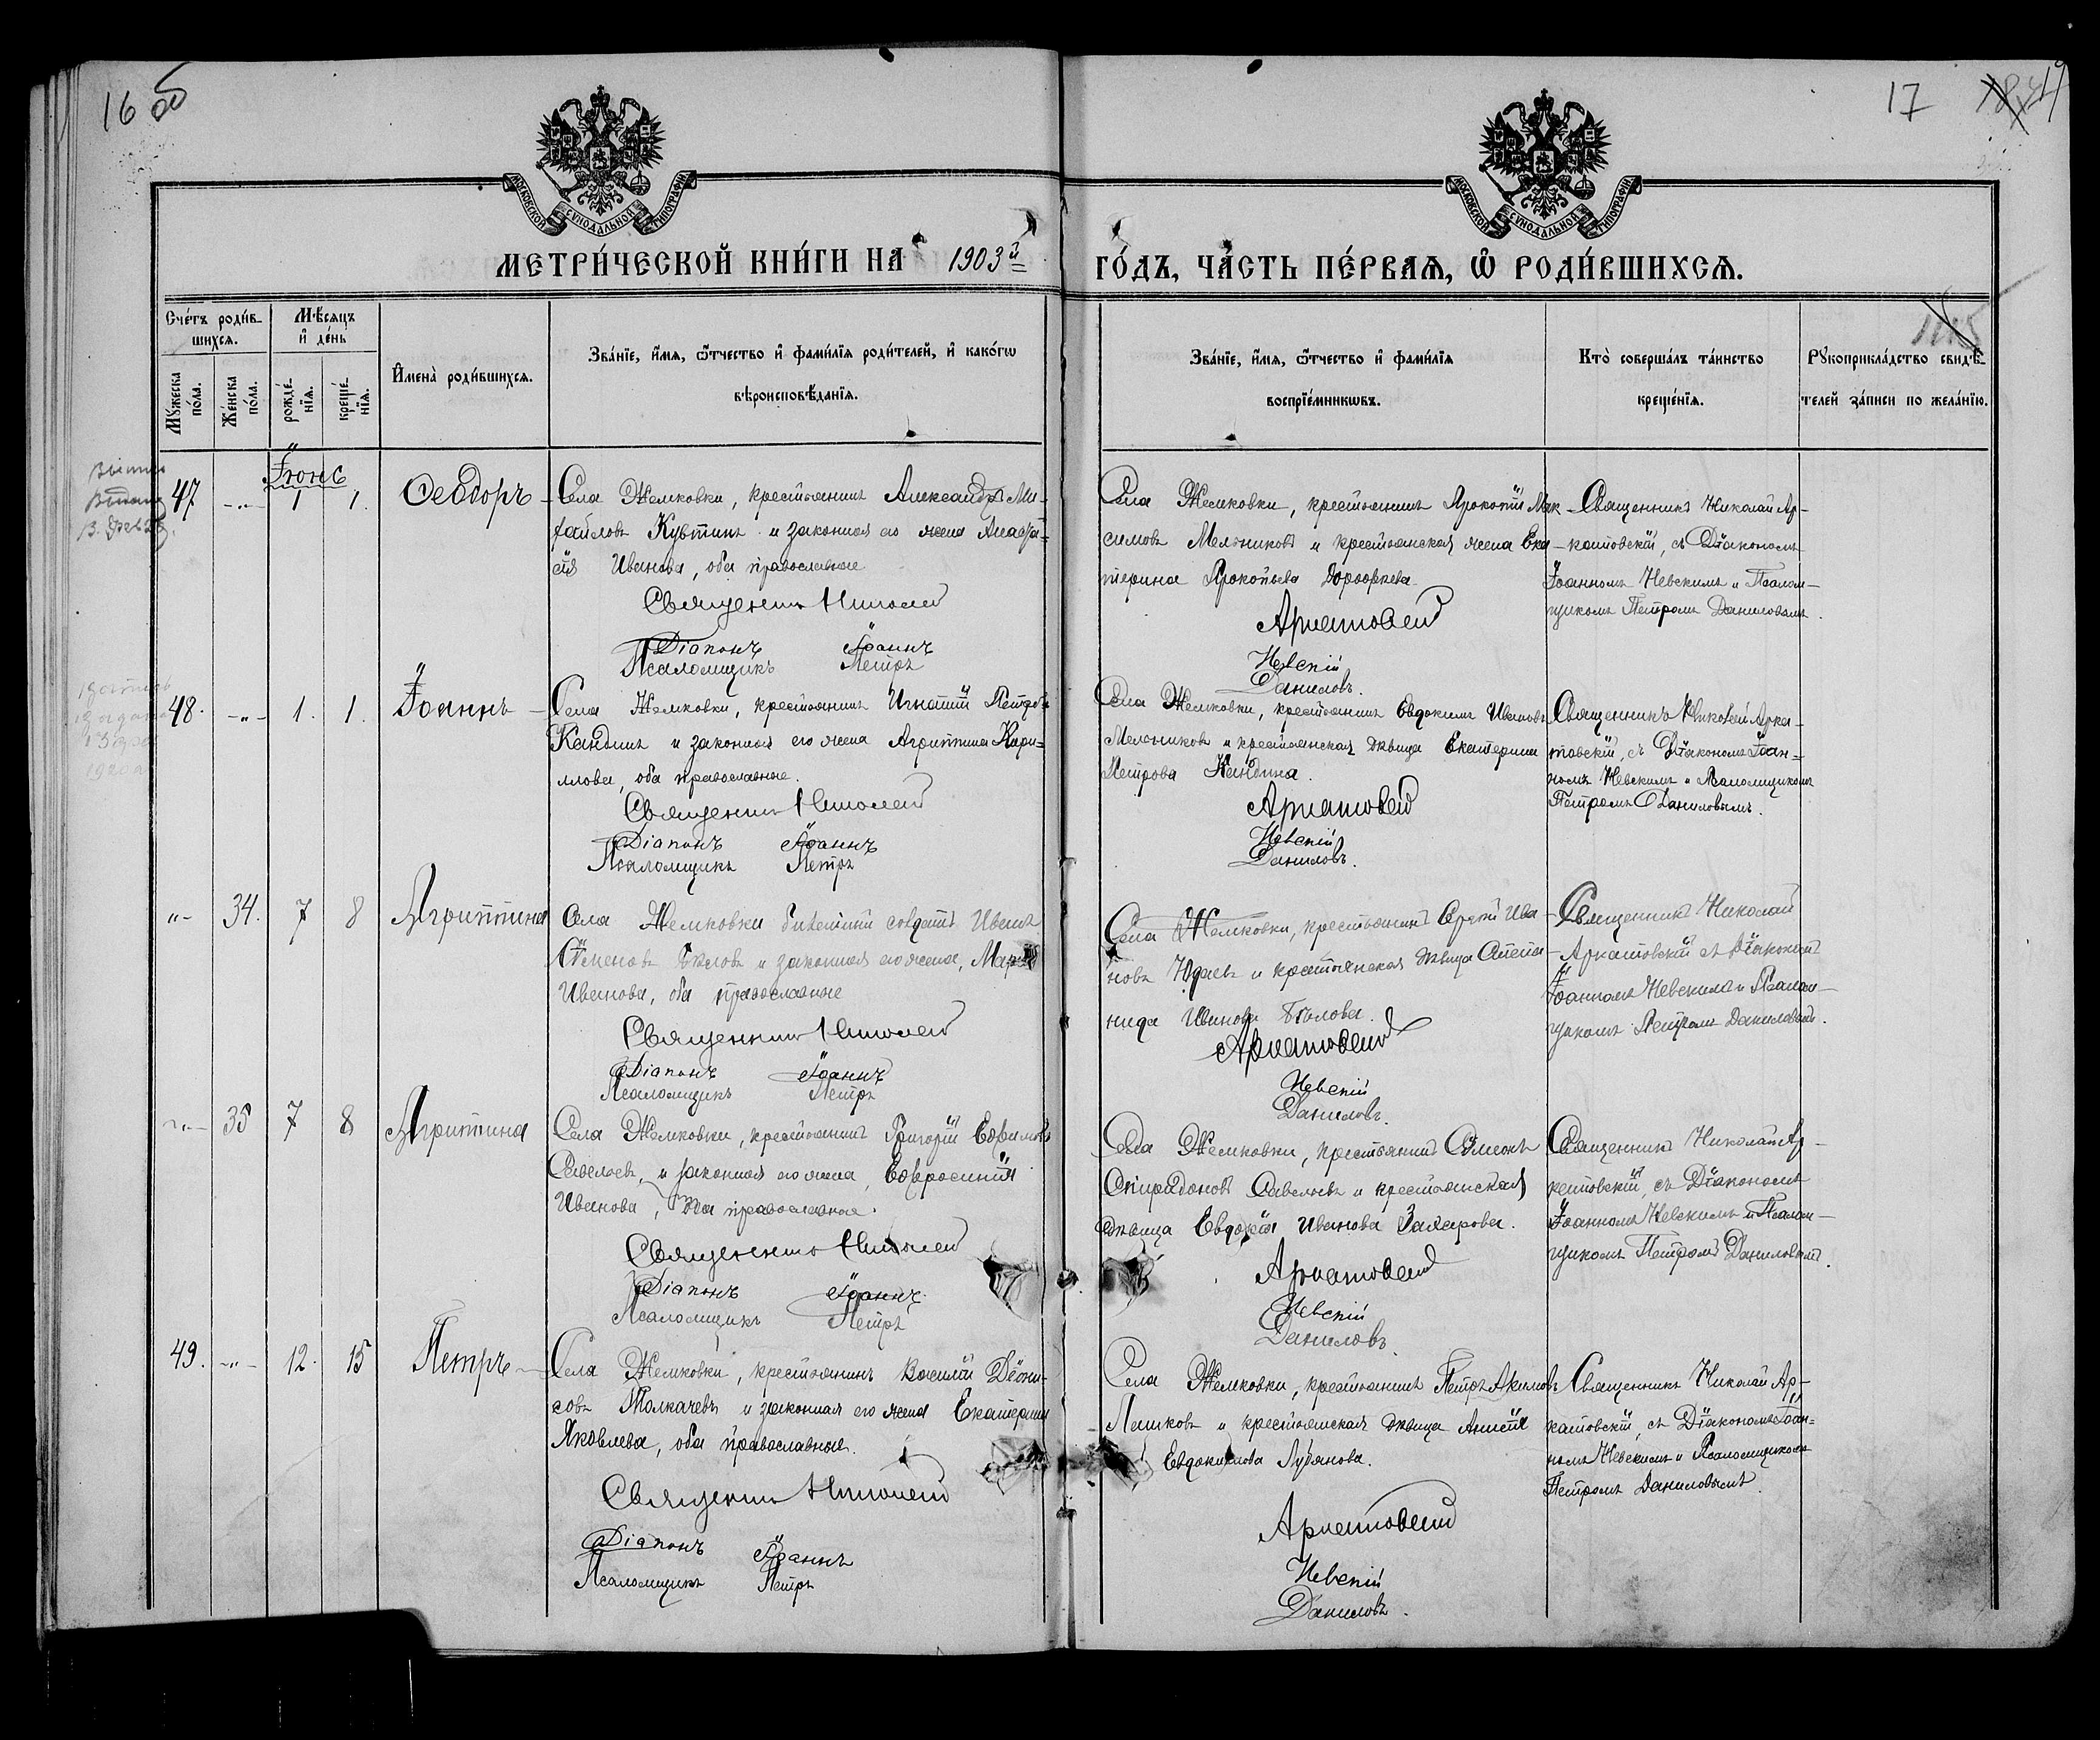 16 об
17
МОСКОВСКОЙ СУНОДАЛЬНОЙ ТИПОГРАФІИ
МОСКОВСКОЙ СУНОДАЛЬНОЙ ТИПОГРАФІИ
МЕТРИ́ЧЕСКОЙ КНИ́ГИ НА 1903й
ГО́ДЪ, ЧА́СТЬ ПЕ́РВАѦ, Ѡ РОДИ́ВШИХСѦ.
Сче́тъ роди́в-
шихсѧ.
Мꙋ́жеска по́ла.
Же́нска по́ла.
М́ѣсѧцъ
и҆ де́нь
рожде́-
нїѧ.
креще́-
нїѧ.
И҆мена̀ роди́вшихсѧ.
Зва́нїе, и҆́мѧ, ѻ҆́тчество и҆ фами́лїѧ роди́телей, и҆ како́гѡ
вѣроисповѣ́данїѧ.
Зва́нїе, и҆́мѧ, ѻ҆́тчество и҆ фами́лїѧ
воспрїе́мникѡвъ.
Кто̀ соверша́лъ та́инство
креще́нїѧ.
Рꙋкоприкла́дство свидѣ́-
телей за́писи по жела́нїю.
Іюнь
47. -"- 1 1. Ѳеодоръ
Села Жемковки, крестьянинъ Александръ Ми-
хайловъ Кувтинъ и законная его жена Анаста-
сія Иванова, оба православные
Священникъ Николай
Діаконъ Іоаннъ
Псаломщикъ Петръ
Села Жемковки, крестьянинъ Прокопій Мак-
симовъ Мельниковъ и крестьянская жена Ека-
терина Прокопьева Дорофеева
Аркатовскій
Невскій
Даниловъ.
Священникъ Николай Ар-
катовскій, съ Діакономъ
Іоанномъ Невскимъ и Псалом-
щикомъ Петромъ Даниловымъ.
48. -"- 1. 1. Іоаннъ
Села Жемковки, крестьянинъ Игнатій Петровъ
Кандинъ и законная его жена Агриппина Кири-
ллова, оба православные.
Священникъ Николай
Діаконъ Іоаннъ
Псаломщикъ Петръ
Села Жемковки, крестьянинъ Евдокимъ Ивановъ
Мельниковъ и крестьянская дѣвица Екатерина
Петрова Кандина.
Аркатовскій
Невскій
Даниловъ.
Священникъ Николай Арка-
товскій, съ Діакономъ Іоан-
номъ Невскимъ и Псаломщикомъ
Петромъ Даниловымъ.
"- 34. 7 8 Агриппина
Села Жемковки билетный солдатъ Иванъ
Сѵменовъ Бѣловъ и законная его жена, Марія
Иванова, оба православные
Священникъ Николай
Діаконъ Іоаннъ
Псаломщикъ Петръ
Села Жемковки, крестьянинъ Сергій Ива-
новъ Юдаевъ и крестьянская дѣвица Степа-
нида Иванова Бѣлова.
Аркатовскій
Невскій
Даниловъ.
Священникъ Николай
Аркатовскій съ Діакономъ
Іоанномъ Невскимъ и Псалом-
щикомъ Петромъ Даниловымъ.
-"- 35 7 8 Агриппина
Села Жемковки, крестьянинъ Григорій Ефимовъ
Савельевъ, и законная его жена, Евфросинія
Иванова, оба православные.
Священникъ Николай
Діаконъ Іоаннъ
Псаломщикъ Петръ
Села Жемковки, крестьянинъ Сѵмеонъ
Спиридоновъ Савельевъ и крестьянская
дѣвица Евдокія Иванова Захарова.
Аркатовскій
Невскій
Даниловъ.
Священникъ Николай Ар-
катовскій, съ Діакономъ
Іоанномъ Невскимъ и Псалом-
щикомъ Петромъ Даниловымъ.
49. -"- 12. 15 Петръ
Села Жемковки, крестьянинъ Василій Діони-
совъ Толкачевъ и законная его жена Екатерина
Яковлева, оба православные.
Священникъ Николай
Діаконъ Іоаннъ
Псаломщикъ Петръ
Села Жемковки, крестьянинъ Петръ Акимовъ
Пешковъ и крестьянская дѣвица Анисія
Евдокимова Лубянова.
Аркатовскій
Невскій
Даниловъ.
Священникъ Николай Ар-
катовскій, съ Діакономъ Іоан-
номъ Невскимъ и Псаломщикомъ
Петромъ Даниловымъ.